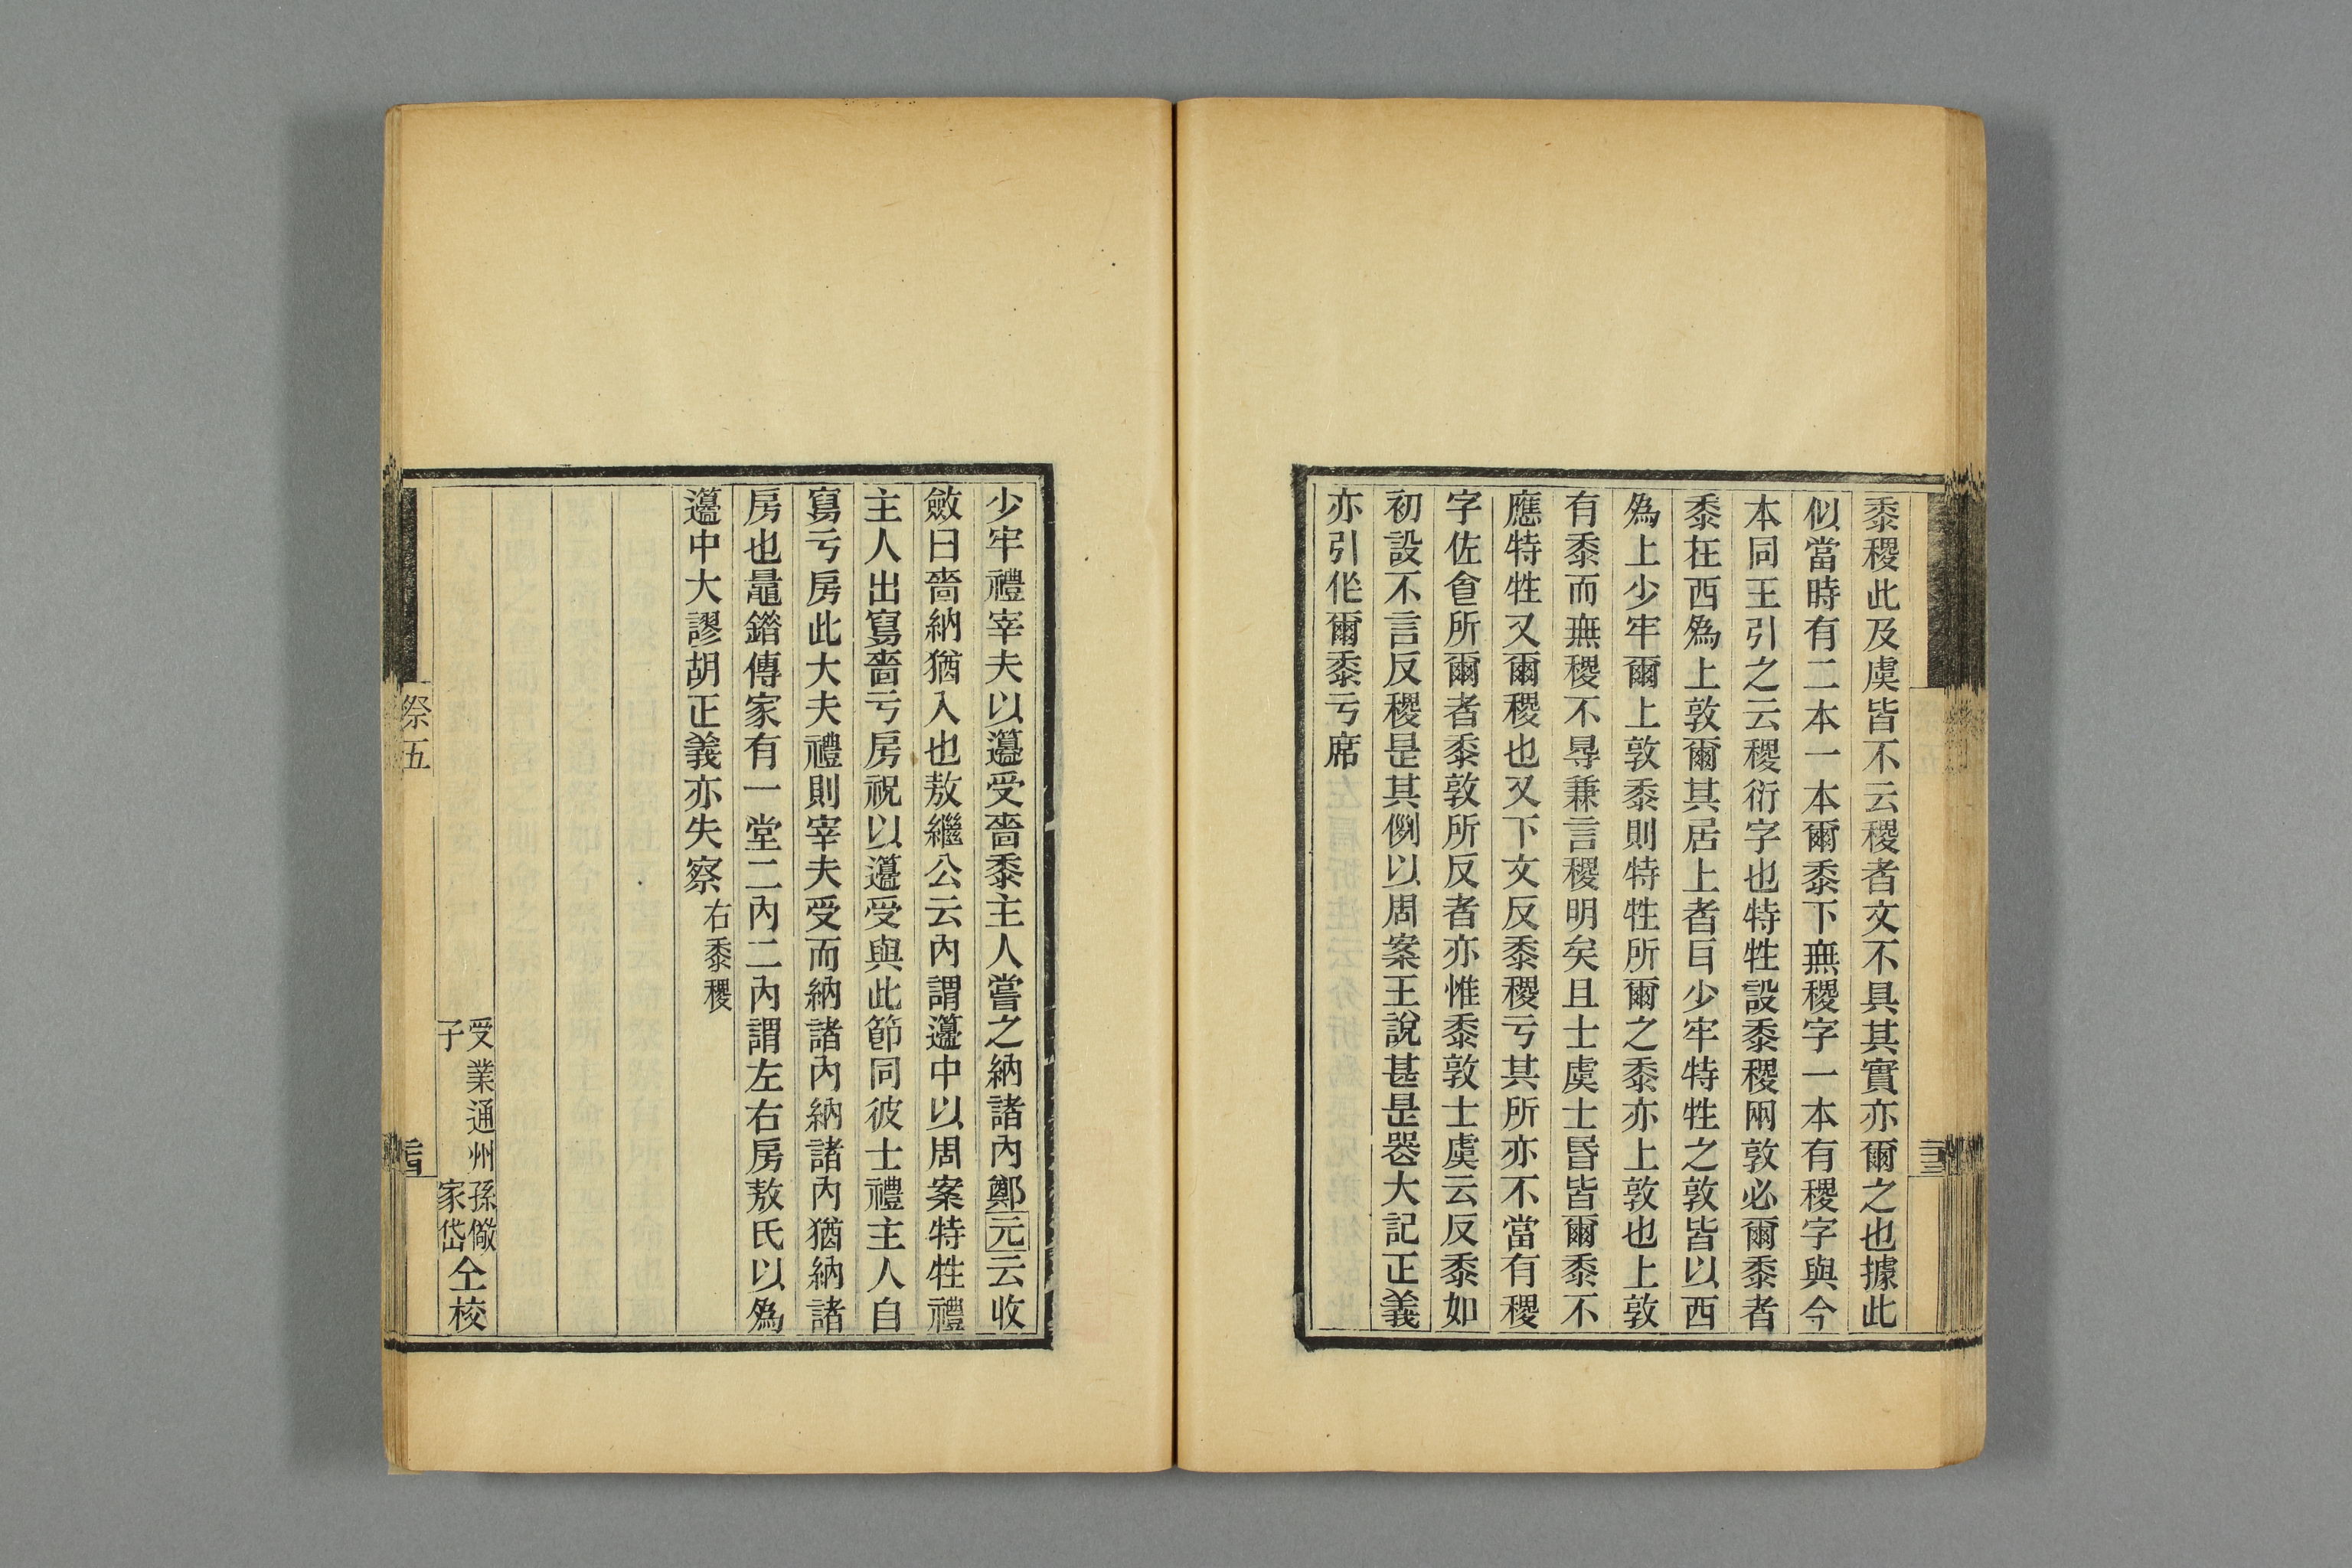 黍稷此及虞皆不云稷者文不具其實亦爾之也據此
似當時有二本一本爾黍下無稷字一本有稷字與今
本同王引之云稷衍字也特牲設黍稷兩敦必爾黍者
黍在西爲上敦爾其居上者𠂤少牢特牲之敦皆以西
爲上少牢爾上敦黍則特牲所爾之黍亦上敦也上敦
有黍而無稷不㝵兼言稷明矣且士虞士昏皆爾黍不
應特牲又爾稷也又下文反黍稷亏其所亦不當有稷
字佐㑹所爾者黍敦所反者亦惟黍敦士虞云反黍如
初設不言反稷是其例以周案王說甚是喪大記正義
亦引作爾黍亏席
少牢禮宰夫以籩受嗇黍主人嘗之納諸內鄭元云收
斂曰嗇納猶入也敖繼公云內謂籩中以周案特牲禮
主人出寫嗇亏房祝以籩受與此節同彼士禮主人自
寫亏房此大夫禮則宰夫受而納諸內納諸內猶納諸
房也鼂錯傳家有一堂二內二內謂左右房敖氏以爲
籩中大謬胡正義亦失察右黍稷
受業通州孫儆
子家岱仝校
祭五